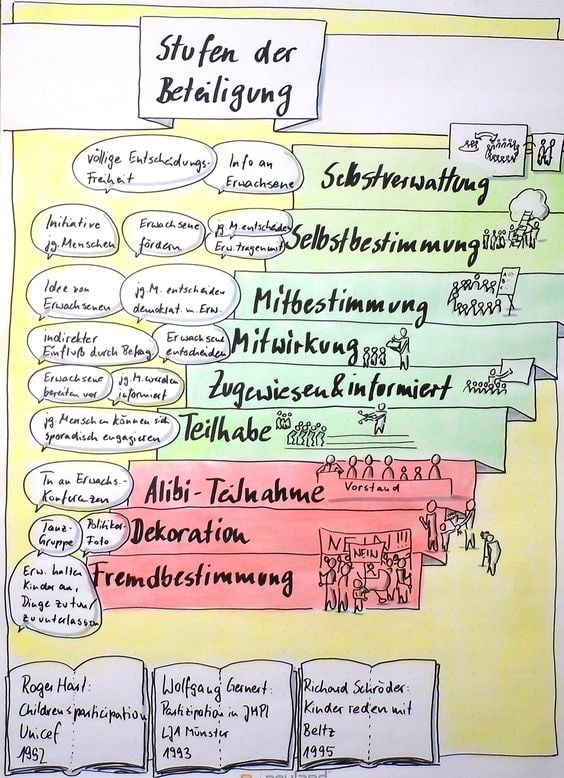 Stufen der
Beteiligung
völlige Entscheidungs-
Freiheit
Info an
Erwachsene
Selbstverwaltung
Initiative
jg. Menschen
Erwachsene
fördern
jg. M. entscheiden
Erw. tragen mit
Selbstbestimmung
Idee von
Erwachsenen
jg. M. entscheiden
demokrat. m. Erw.
Mitbestimmung
indirekter
Einfluß durch Befrag.
Erwachsene
entscheiden
Mitwirkung
Erwachsene
bereiten vor
jg. M. werden
informiert
Zugewiesen & informiert
jg. Menschen können sich
sporadisch engagieren
Teilhabe
Tn an Erwachs.-
Konferenzen
Alibi-Teilnahme
Vorstand
Tanz-
Gruppe
Politiker-
Foto
Dekoration
NEIN
Erw. halten
Kinder an,
Dinge zu tun/
zu unterlassen
Fremdbestimmung
Roger Hart:
Childrens participation
Unicef
1992
Wolfgang Gernert:
Partizipation in JHPl
LJA Münster
1993
Richard Schröder:
Kinder reden mit
Beltz
1995